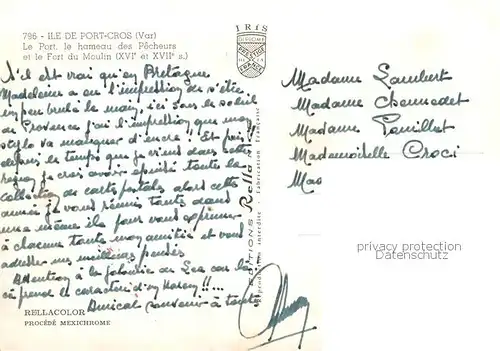 796 - ILE DE PORT-CROS (Var)
Le Port, le hameau des Pêcheurs
et le Fort du Moulin (XVIᵉ et XVIIᵉ s.)
S'il est vrai qu'en Bretagne
Madeleine a eu l'impression de s'être
un peu brûlé la main, ici sous le soleil
de Provence j'ai l'impression que mon
stylo va manquer d'encre !! Et puis
depuis le temps que je viens dans cette
région je crois avoir épuisé toute la
collection de cartes postales alors cette
année je vous réunis toutes dans
une même île pour vous exprimer
à chacune toute mon amitié et vous
adresser mes meilleures pensées
Attention à la jalousie de car là
ça prend le caractère d'un !!...
Amical souvenir à toutes
RELLACOLOR
PROCÉDÉ MEXICHROME
IRIS
DIPLOME
PRESTIGE
FRANCE
EDITIONS Rella
Reproduction interdite - Fabrication Française
Madame Lambert
Madame
Madame Pouillet
Mademoiselle Croci
privacy watermark
privacy watermark